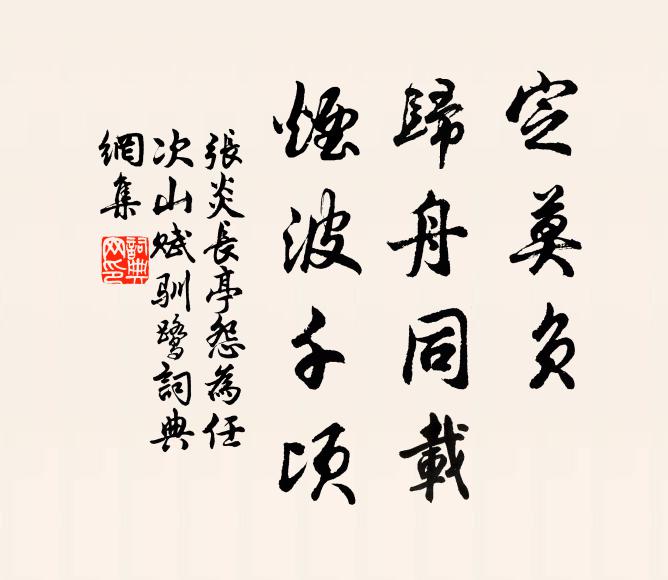 定莫負
歸舟同載
煙波千頃
張炎長亭怨為任
次山賦馴鷺詞典
網集
詞典網印